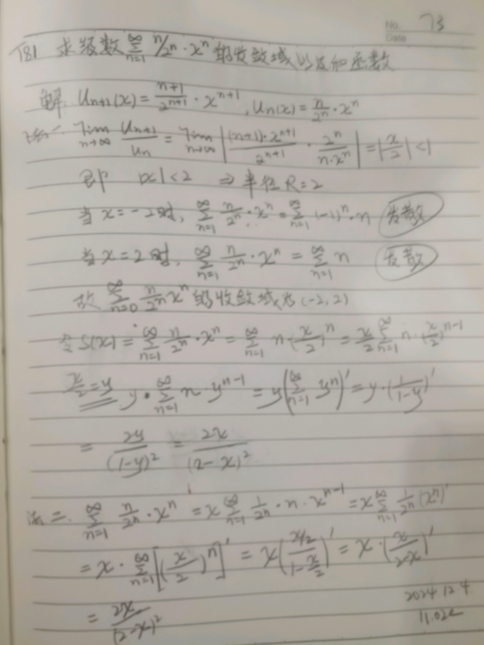 No. 73
Date
T81 求级数 ∑_{n=1}^{∞} n/2^n · x^n 的收敛域以及和函数
解: U_{n+1}(x) = (n+1)/2^{n+1} · x^{n+1}, U_n(x) = n/2^n · x^n
法一 lim_{n→∞} U_{n+1}/U_n = lim_{n→∞} |(n+1)·x^{n+1}/2^{n+1} · 2^n/(n·x^n)| = |x/2| < 1
即 |x| < 2 ⇒ 半径 R = 2
当 x = -2 时, ∑_{n=1}^{∞} n/2^n · x^n = ∑_{n=1}^{∞} (-1)^n · n 发散
当 x = 2 时, ∑_{n=1}^{∞} n/2^n · x^n = ∑_{n=1}^{∞} n 发散
故 ∑_{n=0}^{∞} n/2^n x^n 的收敛域为 (-2, 2)
令 S(x) = ∑_{n=1}^{∞} n/2^n · x^n = ∑_{n=1}^{∞} n·(x/2)^n = x/2 ∑_{n=1}^{∞} n·(x/2)^{n-1}
x/2 = y y·∑_{n=1}^{∞} n·y^{n-1} = y(∑_{n=1}^{∞} y^n)' = y·(1/(1-y))'
= 2y/(1-y)^2 = 2x/(2-x)^2
法二. ∑_{n=1}^{∞} n/2^n · x^n = x ∑_{n=1}^{∞} 1/2^n · n · x^{n-1} = x ∑_{n=1}^{∞} 1/2^n (x^n)'
= x · ∑_{n=1}^{∞} [(x/2)^n]' = x ((x/2)/(1-x/2))' = x·(x/(2-x))'
= 2x/(2-x)^2
2024.12.4